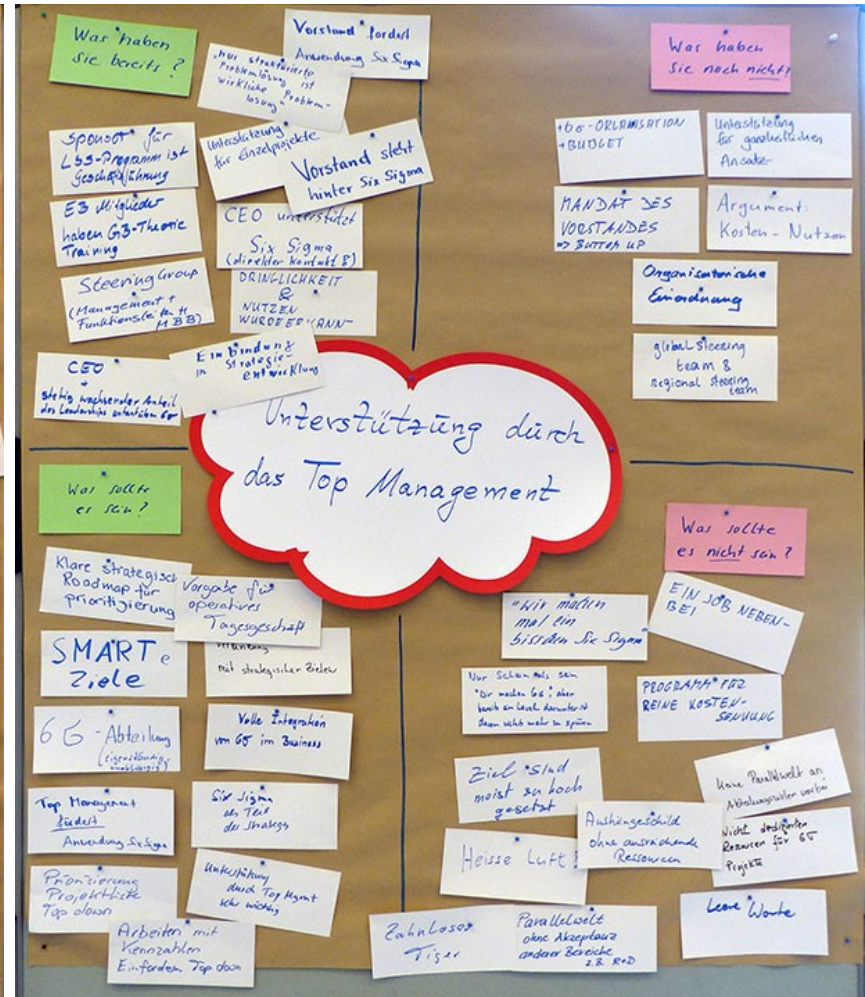 Was haben
Sie bereits?
Vorstand fordert
Anwendung Six Sigma
Nur strukturierte
Problemlösung ist
wirkliche Problem-
lösung"
Sponsor für
LSS-Programm ist
Geschäftsführung
Unterstützung
für Einzelprojekte
Vorstand steht
hinter Six Sigma
EB Mitglieder
haben GB-Theorie
Training
CEO unterstützt
Six Sigma
(direkter Kontakt
Steering Group
(Management +
Funktionsleiter
MBB)
DRINGLICHKEIT
&
NUTZEN
WURDE ERKANNT
CEO
+
stetig wachsender Anteil
des Leaderships unterstützen 6σ
Einbindung
in Strategie-
entwicklung
Was haben
Sie noch nicht?
+6σ-ORGANISATION
+BUDGET
Unterstützung
für ganzheitlichen
Ansatz
MANDAT DES
VORSTANDES
=> BUTTOM UP
Argument:
Kosten-Nutzen
Organisatorische
Einordnung
global steering
team &
regional steering
team
Unterstützung durch
das Top Management
Was sollte
es sein?
Klare strategisch
Roadmap für
priorisierung
Vorgabe für
operatives
Tagesgeschäft
SMARTe
Ziele
mit strategischer Zielen
6σ-Abteilung
(eigenständig
unabhängig)
Volle Integration
von 6σ im Business
Top Management
fördert
Anwendung Six Sigma
Six Sigma
als Teil
der Strategy
Priorisierung
Projektliste
Top down
Unterstützung
durch Top Mgmt
sehr wichtig
Arbeiten mit
Kennzahlen
Einfordern Top down
Was sollte
es nicht sein?
"Wir machen
mal ein
bisschen Six Sigma"
EIN JOB NEBEN-
BEI
Nur Schein als sein
"Wir machen 6σ", aber
bereits ein Level darunter ist
davon nichts mehr zu spüren
PROGRAMM FÜR
REINE KOSTEN-
SENKUNG
Ziel sind
meist zu hoch
gesetzt
Keine Parallelwelt an
vorbei
Aushängeschild
ohne ausreichende
Ressourcen
Nicht dedizierten
Resourcen für 6σ
Projekte
Heisse Luft
Zahnloser
Tiger
Parallelwelt
ohne Akzeptanz
anderer Bereiche
z.B. R+D
Leere Worte